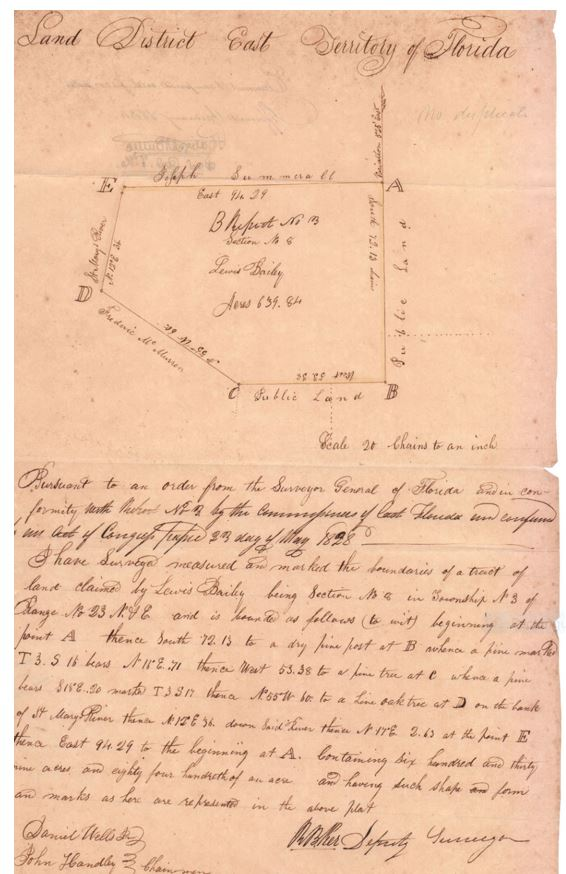 Land District East Territory of Florida
No duplicate
Variation 5°25' East
E Joseph Summerall A
East 94.29
B Report No 3
Section No 8
Lewis Bailey
Acres 639.84
South 72.13
Public Land
St Marys River
N 12 E 36
D
Frederic Mc Murren
N 55 W 60
West 53.38
C Public Land B
Scale 20 Chains to an inch
Pursuant to an order from the Surveyor General of Florida and in con-
formity with Report No 3 by the Commissioners of East Florida and confirmed
an Act of Congress 23 day of May 1828
I have Surveyed measured and marked the boundaries of a tract of
land claimed by Lewis Bailey being Section No 8 in Township No 3 of
Range No 23 N & E and is bounded as follows (to wit) beginning at the
point A thence South 72.13 to a dry pine post at B whence a pine marked
T 3. S 18 bears N 18 E .71 thence West 53.38 to a pine tree at C whence a pine
bears S 18 E .20 marked T 3 S 17 thence N 55 W 60 to a Live oak tree at D on the bank
of St Marys River thence N 12 E 36. down said River thence N 17 E 2.63 at the point E
thence East 94.29 to the beginning at A. Containing six hundred and thirty
nine acres and eighty four hundredth of an acre and having such shape and form
and marks as here are represented in the above plat
Daniel Wells Deputy Surveyor
John Handley Chainmen